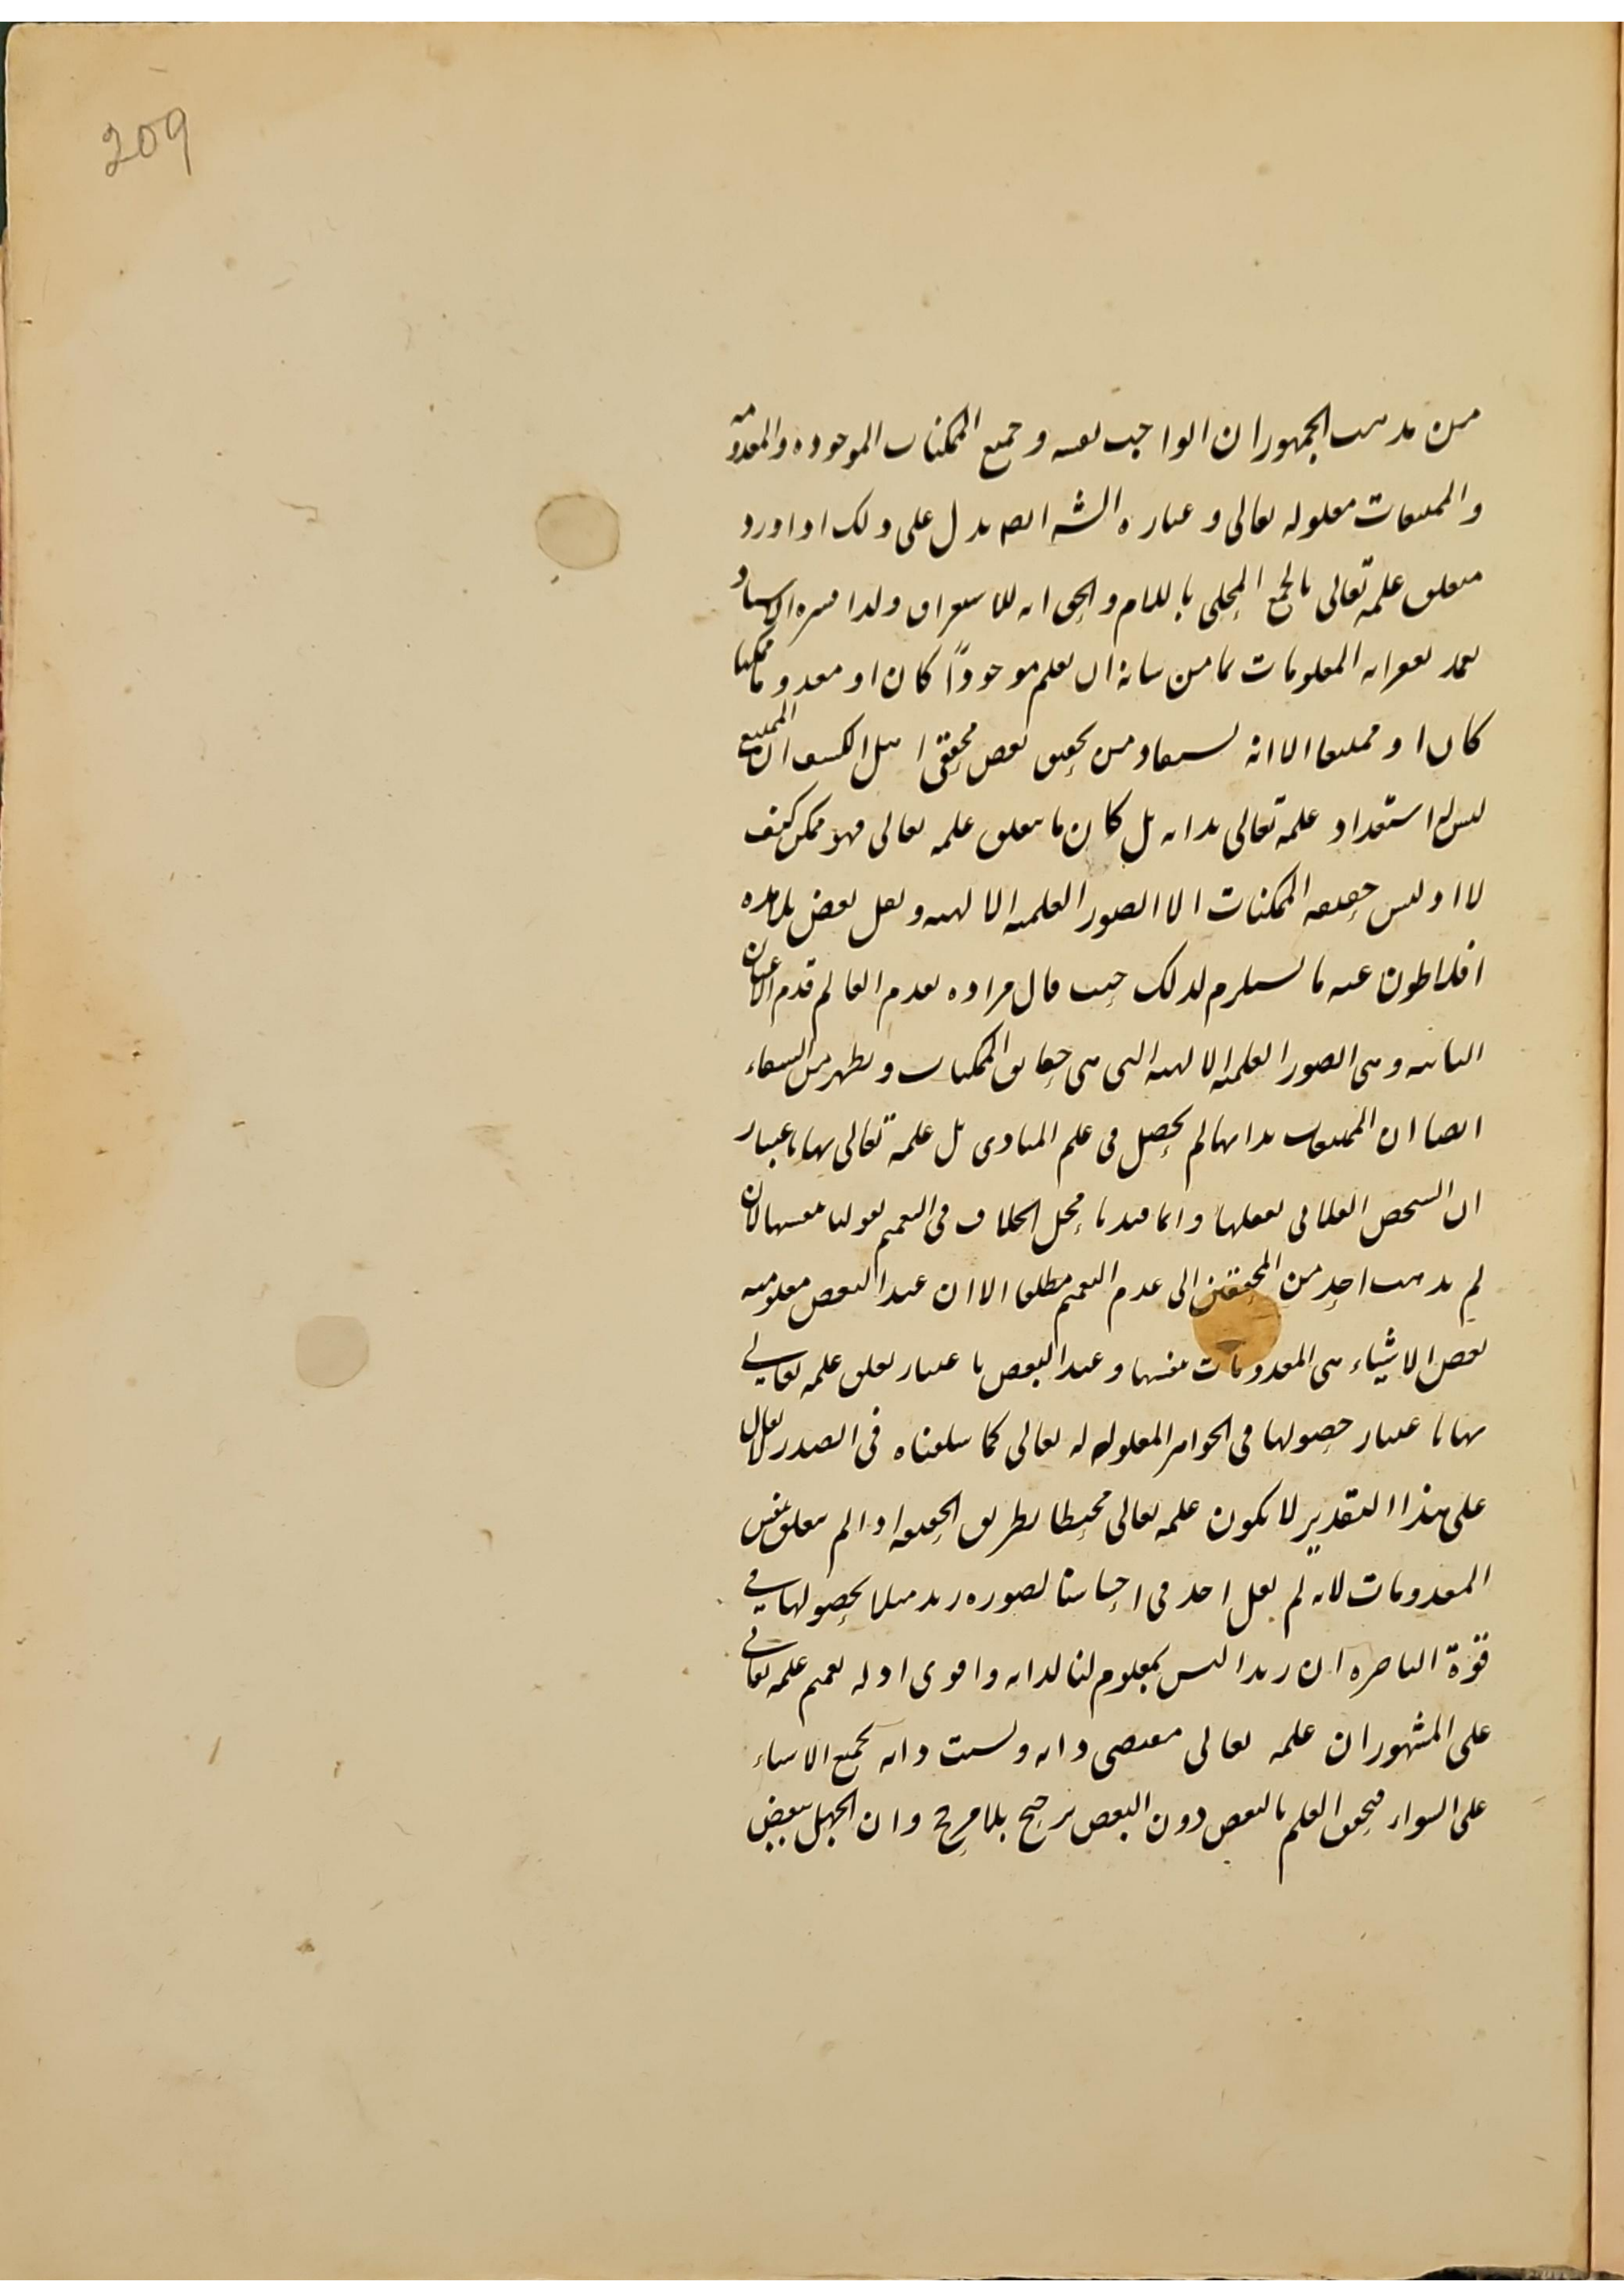 209
من مذهب الجمهور ان الواجب نفسه وجميع الممكنات الموجوده والمعدومه
والممتنعات معلوله تعالى وعباره الشه ايضا يدل على ذلك اذ اورد
متعلق علمه تعالى بالجمع المحلى باللام والحق انه للاستغراق ولذا فسره الاستاد
بعد تعريف المعلومات بما من شانه ان يعلم موجودًا كان او معدوما ممكنا
كان او ممتنعا الا انه يستفاد من تحقيق بعض محققى اهل الكشف ان الممتنع
ليس له استعداد علمه تعالى بذاته بل كان ما يتعلق علمه تعالى فهو ممكن كيف
لا اذ ليس حقيقه الممكنات الا الصور العلميه الالهيه ونقل بعض تلامذه
افلاطون عنه ما يستلزم لذلك حيث قال مراده بقدم العالم قدم الاعيان
الثابته وهى الصور العلميه الالهيه التى هى حقايق الممكنات ويظهر من الشفاء
ايضا ان الممتنعات بذاتها لم يحصل فى علم المبادى بل علمه تعالى بها باعتبار
ان الشخص الفلانى يعقلها وانما قيدنا محل الخلاف فى التعميم بقولنا نفسها لان
لم يذهب احد من المحققين الى عدم التعميم مطلقا الا ان عند البعض معلوميه
بعض الاشياء هى المعدومات نفسها وعند البعض باعتبار تعلق علمه تعالى
بها باعتبار حصولها فى الجواهر المعلوله له تعالى كما سلفناه فى الصدر لا يقال
على هذا التقدير لا يكون علمه تعالى محيطا بطريق الحقيقه اذ لم يتعلق بنفس
المعدومات لانه لم يقل احد فى احساسنا لصوره زيد مثلا بحصولها فى
قوة الباصره ان زيدا ليس بمعلوم لنا لذاته واقوى ادله تعميم علمه تعالى
على المشهور ان علمه تعالى مقتضى ذاته ونسبت ذاته بجميع الاشياء
على السواء فتحقق العلم بالبعض دون البعض ترجيح بلا مرجح وان الجهل ببعض